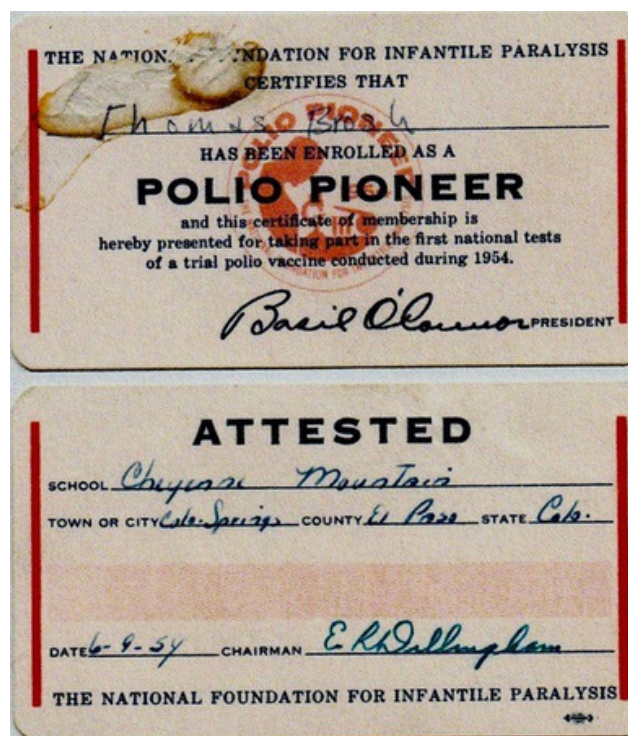 THE NATION. NDATION FOR INFANTILE PARALYSIS
CERTIFIES THAT
Thomas Brosh
HAS BEEN ENROLLED AS A
POLIO PIONEER
and this certificate of membership is
hereby presented for taking part in the first national tests
of a trial polio vaccine conducted during 1954.
Basil O'Connor PRESIDENT
POLIO PIONEER
ATTESTED
SCHOOL Cheyenne Mountain
TOWN OR CITY Colo. Springs COUNTY El Paso STATE Colo.
DATE 6-9-54 CHAIRMAN E R Dillingham
THE NATIONAL FOUNDATION FOR INFANTILE PARALYSIS